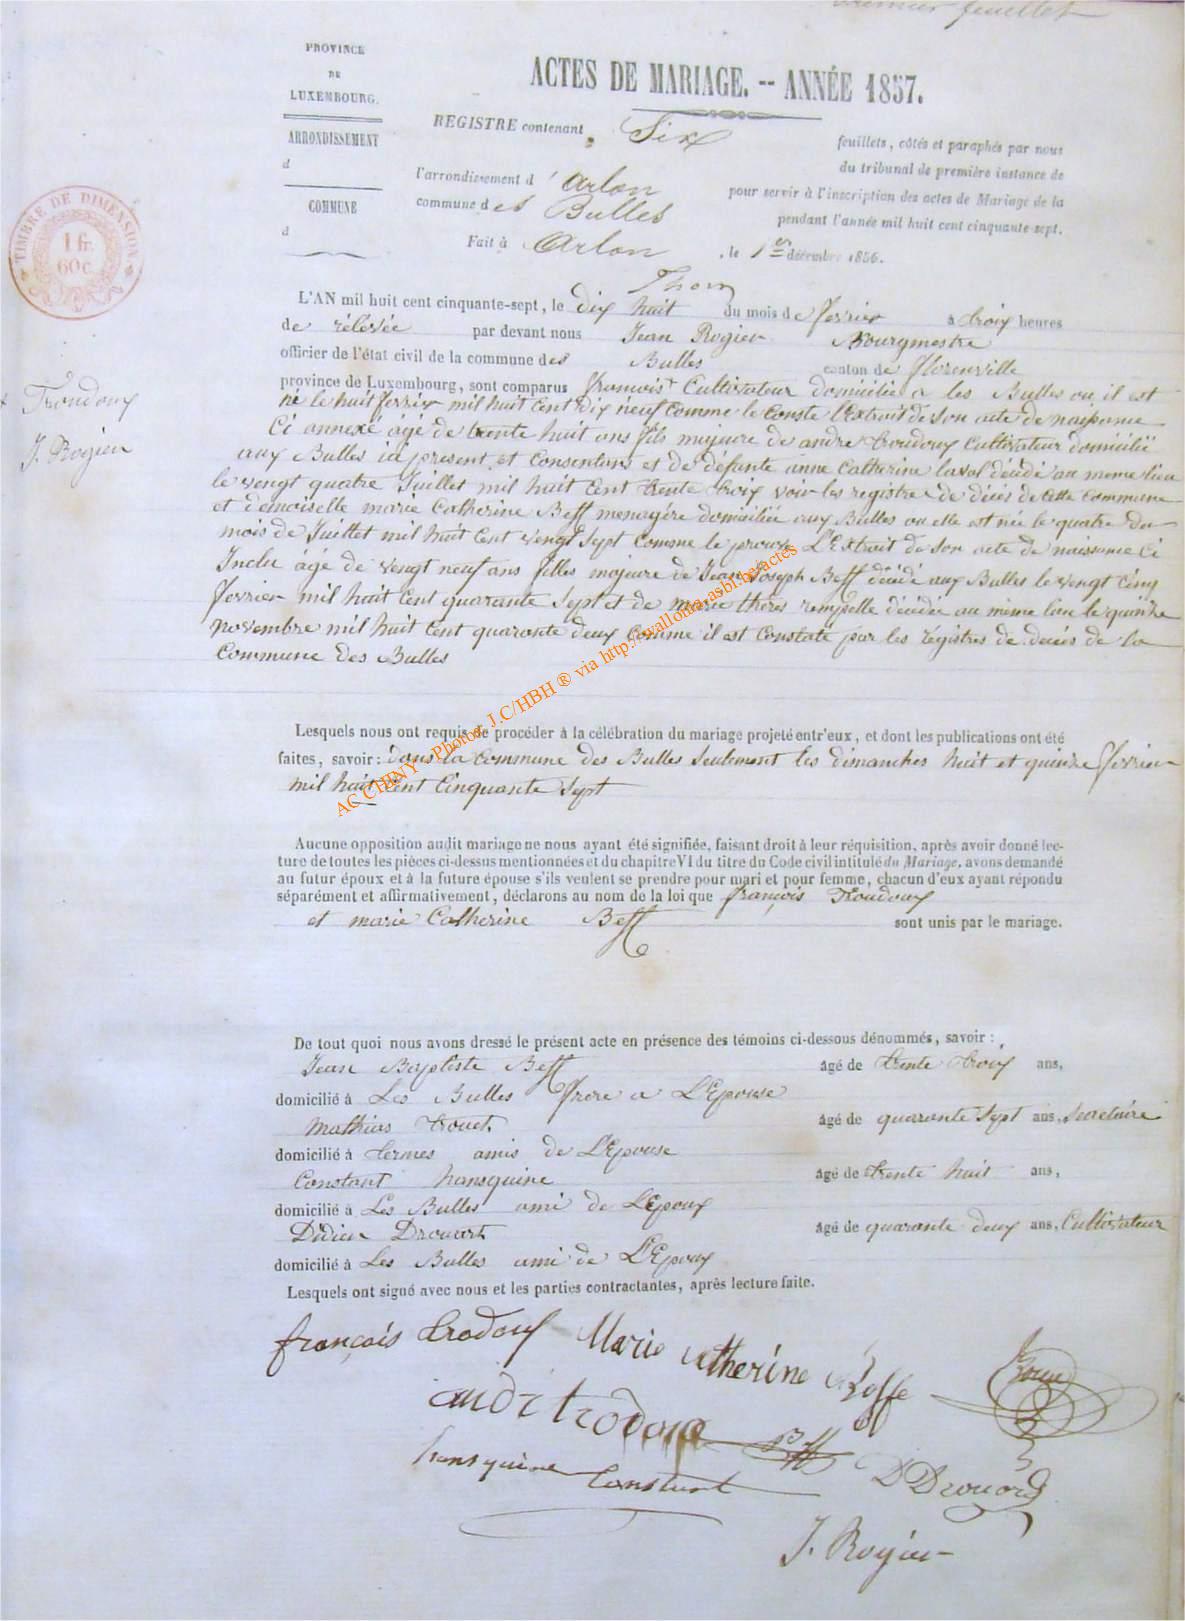 premier feuillet
PROVINCE
DE
LUXEMBOURG.
ARRONDISSEMENT
d
COMMUNE
d
ACTES DE MARIAGE. -- ANNÉE 1857.
REGISTRE contenant Six feuillets, côtés et paraphés par nous
du tribunal de première instance de
l'arrondissement d' Arlon pour servir à l'inscription des actes de Mariage de la
commune des Bulles pendant l'année mil huit cent cinquante-sept.
Fait à Arlon, le 1er décembre 1856.
TIMBRE DE DIMENSION
1 fr.
60 c.
Thorn
L'AN mil huit cent cinquante-sept, le dix huit du mois de fevrier à trois heures
de rélevée par devant nous Jean Rogier Bourgmestre
officier de l'état civil de la commune des Bulles canton de florenville
Troudoux
J. Rogier
province de Luxembourg, sont comparus francois Cultivateur domicilié a les Bulles ou il est
né le huit fevrier mil huit Cent dix neuf comme le Conste l'Extrait de Son acte de naissance
Ci annexé âgé de trente huit ans fils majeure de andré troudoux Cultivateur domicilié
aux Bulles ici present et Consentens et de défunte anne Catherine laval décédé au meme lieu
le vengt quatre Juillet mil huit Cent trente trois voir les registre de déces de Cette Commune
et demoiselle marie Catherine Beff menagére domiciliée aux Bulles ou elle est née le quatre du
mois de Juillet mil huit Cent vengt Sept comme le prouve L'Extrait de Son acte de naissance Ci
Inclu âgé de vengt neuf ans filles majeure de Jean Joseph Beff décédé aux Bulles le vengt Cinq
fevrier mil huit Cent quarante Sept et de marie therès rempelle décédée au même lieu le quinze
novembre mil huit Cent quarante deux Comme il est Constaté par les régistres de décés de la
Commune des Bulles
Lesquels nous ont requis de procéder à la célébration du mariage projeté entr'eux, et dont les publications ont été
faites, savoir: dans la Commune des Bulles Seulement les dimanches huit et quinze fevrier
mil huit Cent Cinquante Sept
AC CHINY - Photos J.C/HBH ® via http://wallonia.asbl.be/actes
Aucune opposition audit mariage ne nous ayant été signifiée, faisant droit à leur réquisition, après avoir donné lec-
ture de toutes les pièces ci-dessus mentionnées et du chapitre VI du titre du Code civil intitulé du Mariage, avons demandé
au futur époux et à la future épouse s'ils veulent se prendre pour mari et pour femme, chacun d'eux ayant répondu
séparément et affirmativement, déclarons au nom de la loi que françois Troudoux
et marie Catherine Beff sont unis par le mariage.
De tout quoi nous avons dressé le présent acte en présence des témoins ci-dessous dénommés, savoir:
Jean Baptiste Beff âgé de trente trois ans,
domicilié à Les Bulles frere a L'Epouse
Mathias trouet âgé de quarante Sept ans, Secretaire
domicilié à termes amis de L'Epouse
Constant hansquine âgé de trente huit ans,
domicilié à Les Bulles ami de L'Epoux
Didier Drouart âgé de quarante deux ans, Cultivateur
domicilié à Les Bulles ami de L'Epoux
Lesquels ont signé avec nous et les parties contractantes, après lecture faite.
françois trodoux Marie catherine Beffe
andé trodoux Beff D Drouard
hansquine Constant
J. Rogier